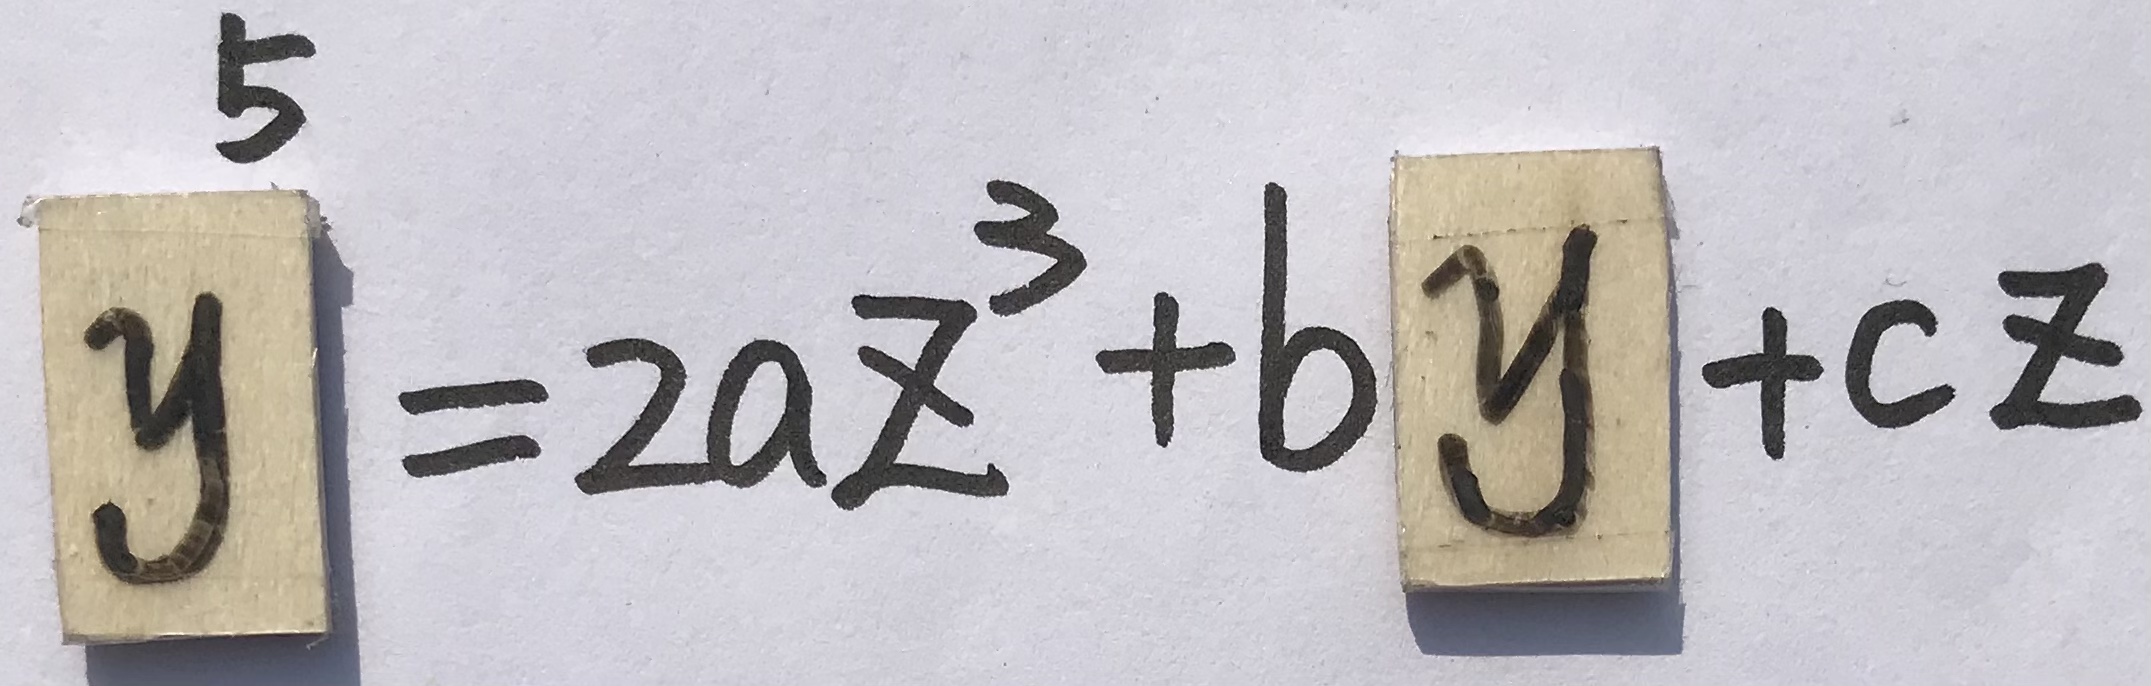 y⁵=2az³+by+cz